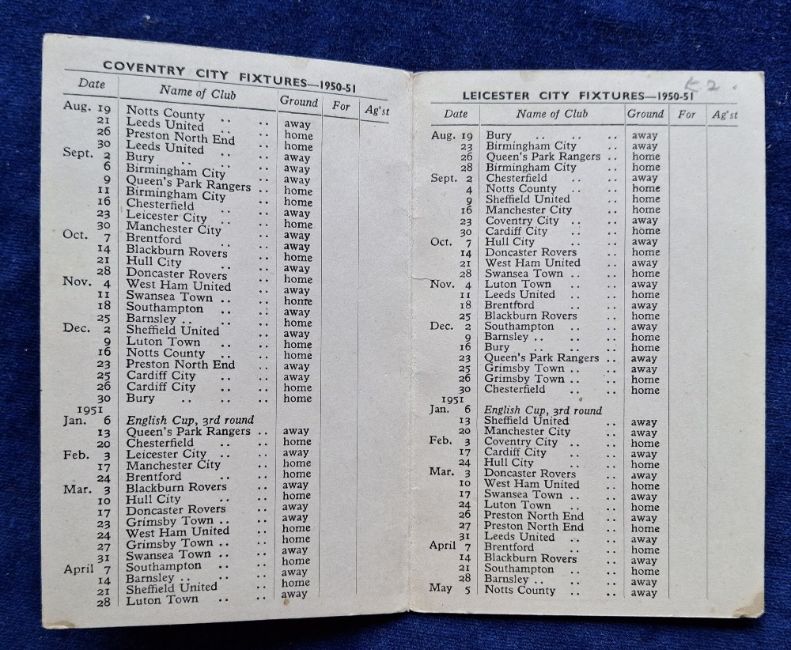 COVENTRY CITY FIXTURES—1950-51
Date Name of Club Ground For Ag'st
Aug. 19 Notts County .. .. away
21 Leeds United .. .. home
26 Preston North End .. home
30 Leeds United .. .. away
Sept. 2 Bury .. .. .. away
6 Birmingham City .. home
9 Queen's Park Rangers .. home
11 Birmingham City .. away
16 Chesterfield .. .. away
23 Leicester City .. .. home
30 Manchester City .. away
Oct. 7 Brentford .. .. away
14 Blackburn Rovers .. home
21 Hull City .. .. away
28 Doncaster Rovers .. home
Nov. 4 West Ham United .. away
11 Swansea Town .. .. home
18 Southampton .. .. away
25 Barnsley .. .. .. home
Dec. 2 Sheffield United .. away
9 Luton Town .. .. home
16 Notts County .. .. home
23 Preston North End .. away
25 Cardiff City .. .. away
26 Cardiff City .. .. home
30 Bury .. .. .. home
1951
Jan. 6 English Cup, 3rd round
13 Queen's Park Rangers .. away
20 Chesterfield .. .. home
Feb. 3 Leicester City .. .. away
17 Manchester City .. home
24 Brentford .. .. home
Mar. 3 Blackburn Rovers .. away
10 Hull City .. .. home
17 Doncaster Rovers .. away
23 Grimsby Town .. .. away
24 West Ham United .. home
27 Grimsby Town .. .. home
31 Swansea Town .. .. away
April 7 Southampton .. .. home
14 Barnsley .. .. .. away
21 Sheffield United .. home
28 Luton Town .. .. away
LEICESTER CITY FIXTURES—1950-51
Date Name of Club Ground For Ag'st
Aug. 19 Bury .. .. .. away
23 Birmingham City .. away
26 Queen's Park Rangers .. home
28 Birmingham City .. home
Sept. 2 Chesterfield .. .. away
4 Notts County .. .. home
9 Sheffield United .. home
16 Manchester City .. home
23 Coventry City .. .. away
30 Cardiff City .. .. home
Oct. 7 Hull City .. .. away
14 Doncaster Rovers .. home
21 West Ham United .. away
28 Swansea Town .. .. home
Nov. 4 Luton Town .. .. away
11 Leeds United .. .. home
18 Brentford .. .. away
25 Blackburn Rovers .. home
Dec. 2 Southampton .. .. away
9 Barnsley .. .. .. home
16 Bury .. .. .. home
23 Queen's Park Rangers .. away
25 Grimsby Town .. .. away
26 Grimsby Town .. .. home
30 Chesterfield .. .. home
1951
Jan. 6 English Cup, 3rd round
13 Sheffield United .. away
20 Manchester City .. away
Feb. 3 Coventry City .. .. home
17 Cardiff City .. .. away
24 Hull City .. .. home
Mar. 3 Doncaster Rovers .. away
10 West Ham United .. home
17 Swansea Town .. .. away
24 Luton Town .. .. home
26 Preston North End .. away
27 Preston North End .. home
31 Leeds United .. .. away
April 7 Brentford .. .. home
14 Blackburn Rovers .. away
21 Southampton .. .. home
28 Barnsley .. .. .. away
May 5 Notts County .. .. away